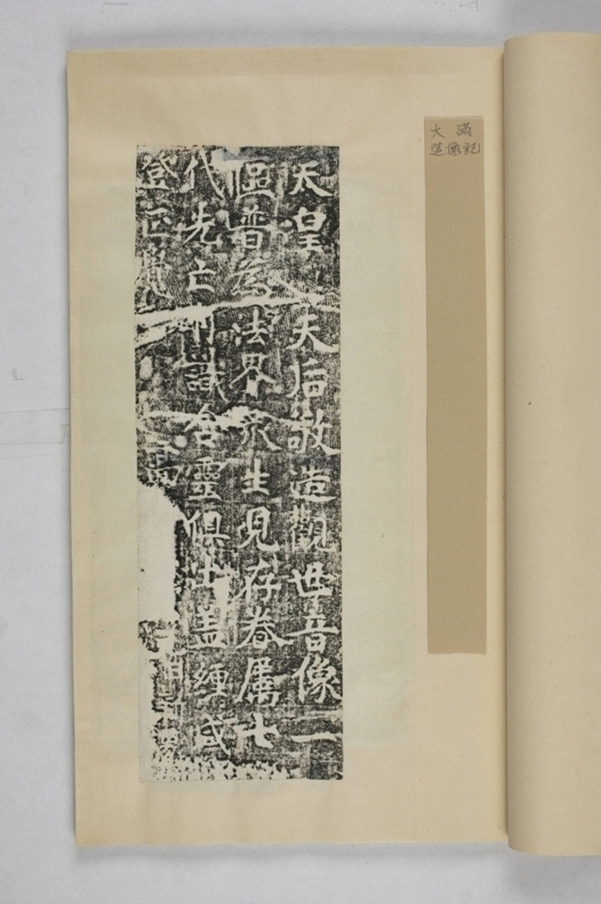 大滿
造像記
天皇天后敬造觀世音像一
區普為法界衆生見存眷屬七
代先亡有識含靈俱出蓋纏咸
登正覺